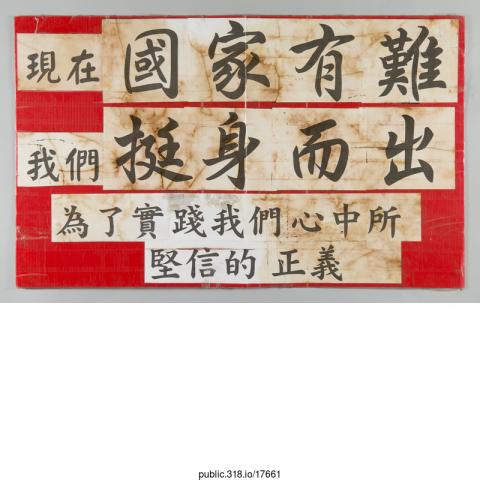 現在國家有難
我們挺身而出
為了實踐我們心中所
堅信的 正義
public.318.io/17661